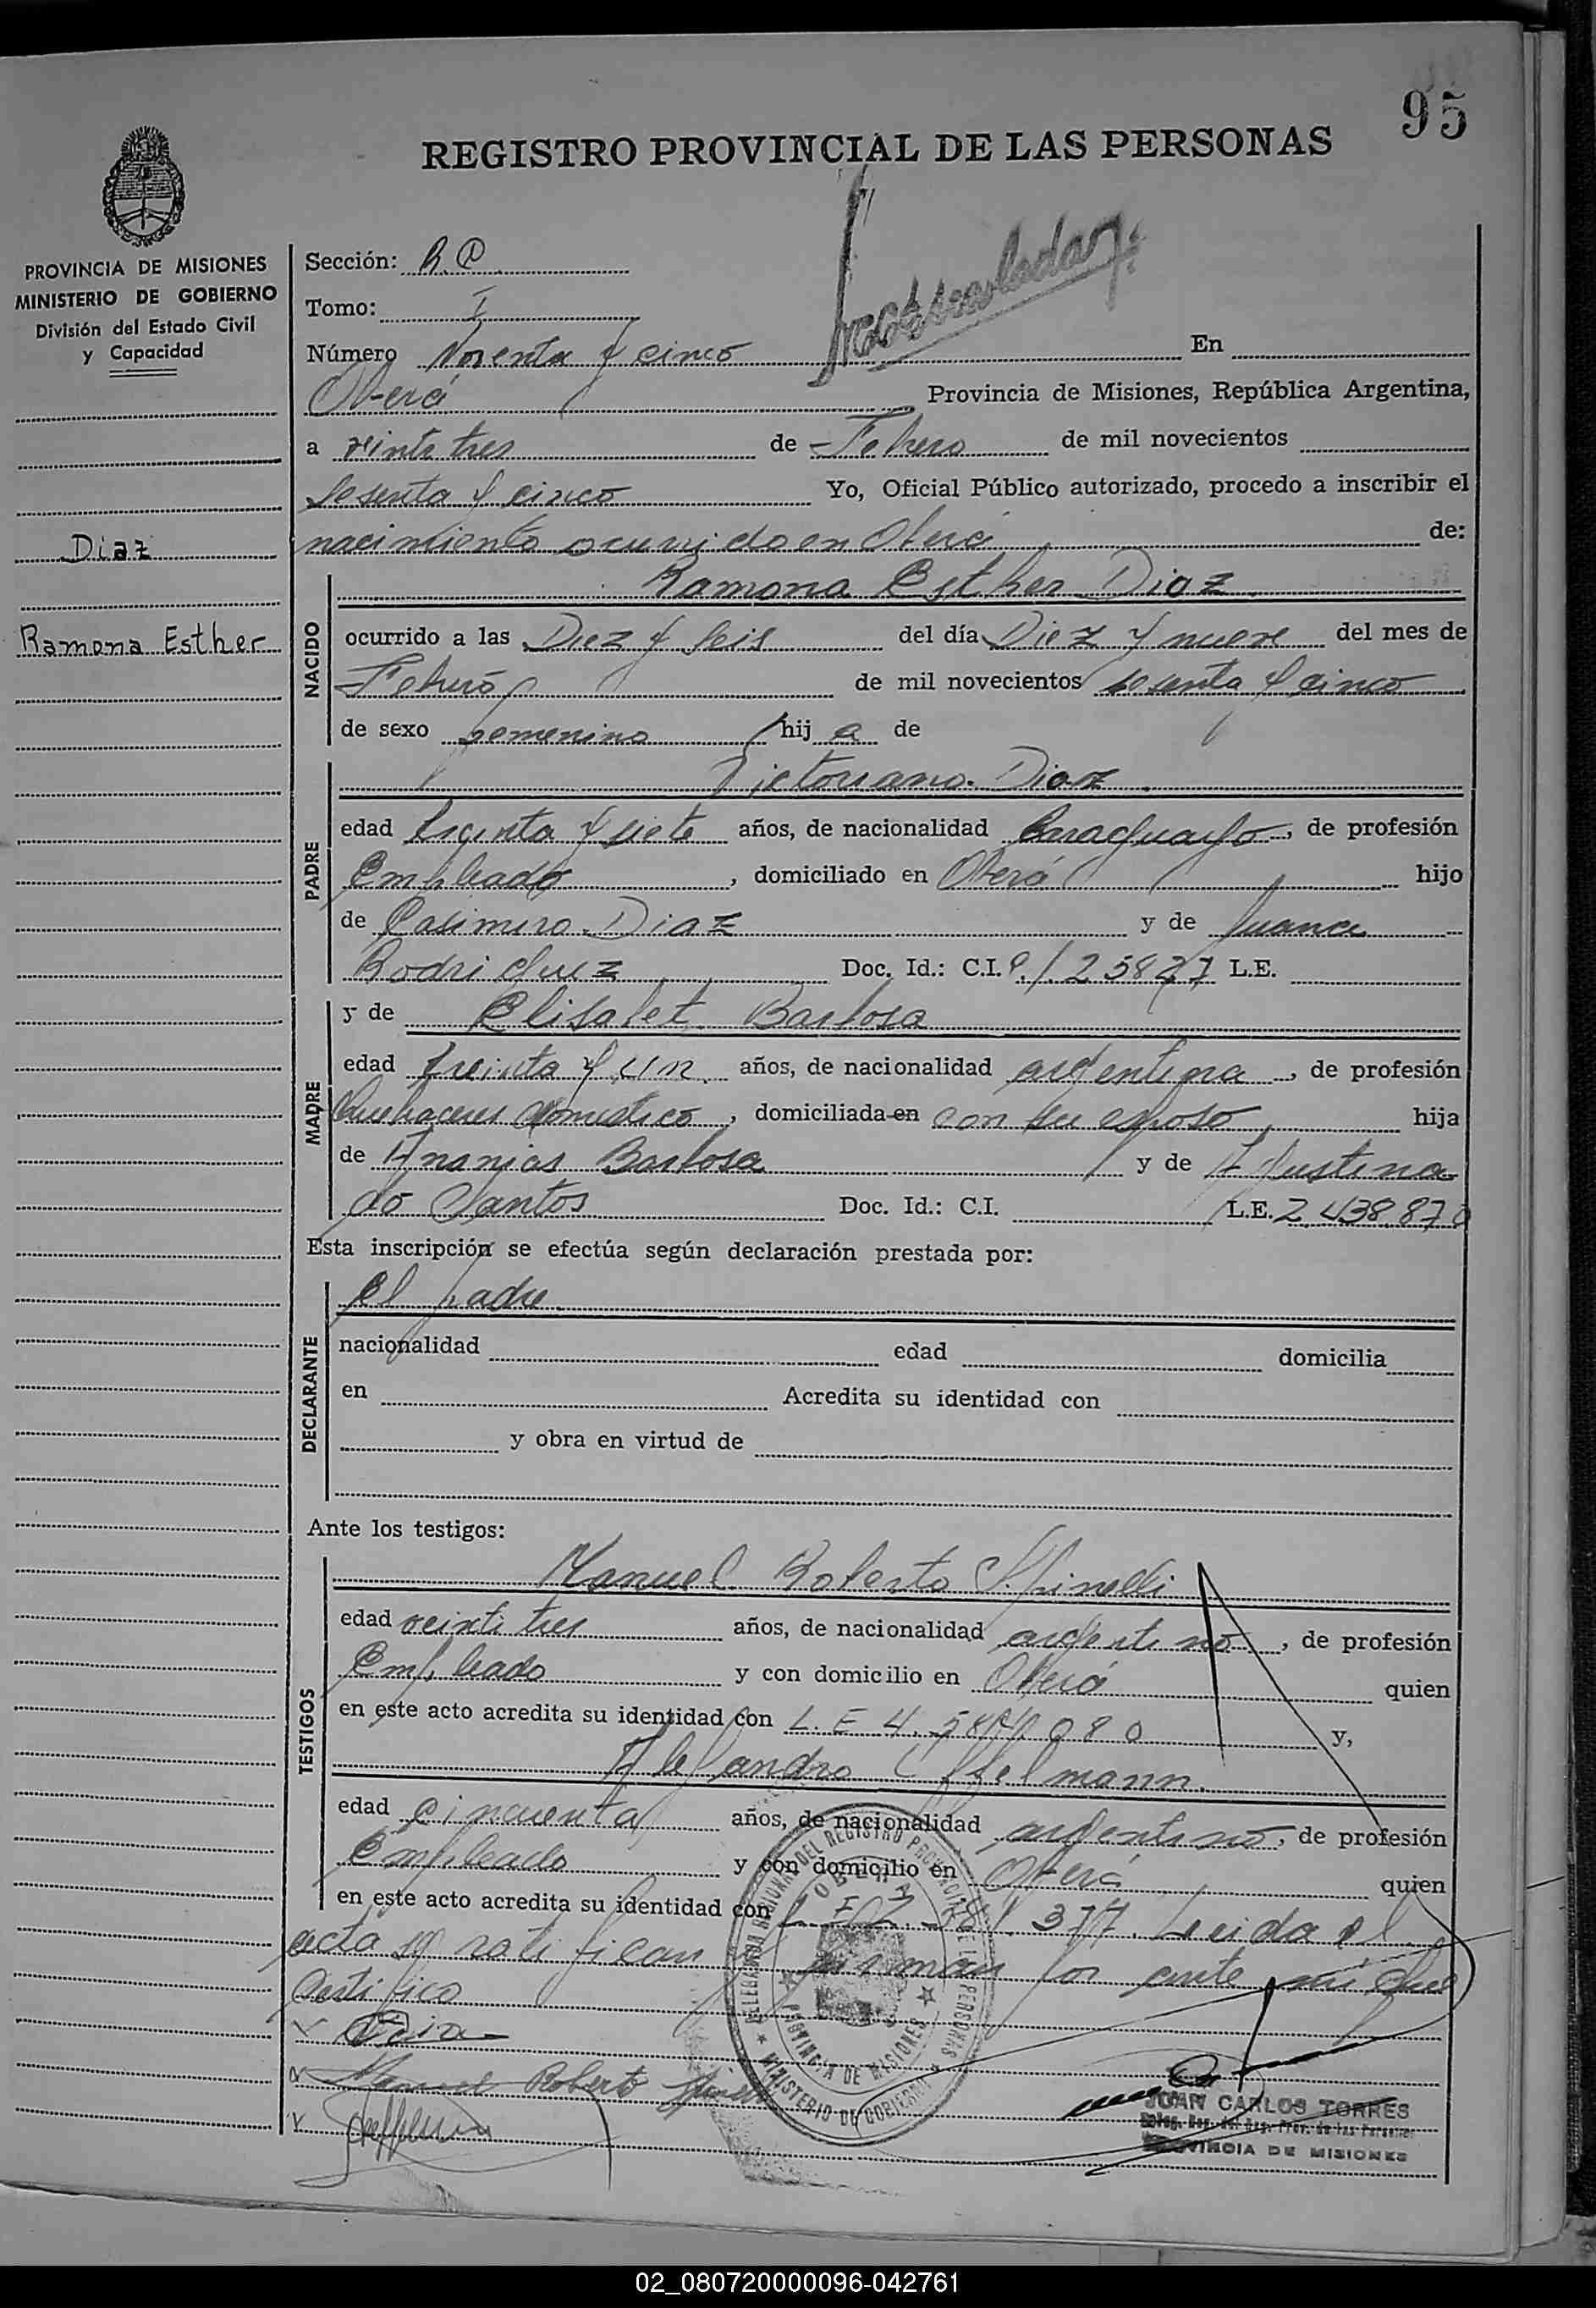 95
REGISTRO PROVINCIAL DE LAS PERSONAS
PROVINCIA DE MISIONES
MINISTERIO DE GOBIERNO
División del Estado Civil
y Capacidad
Diaz
Ramona Esther
Sección: R.P
Tomo: I
Número Noventa y cinco En
Oberá Provincia de Misiones, República Argentina,
a veinte tres de Febrero de mil novecientos
Sesenta y cinco Yo, Oficial Público autorizado, procedo a inscribir el
nacimiento ocurrido en Oberá de:
NACIDO
Ramona Esther Diaz
ocurrido a las Diez y seis del día Diez y nueve del mes de
Febrero de mil novecientos sesenta y cinco
de sexo femenino hij a de
PADRE
Victoriano Diaz
edad treinta y siete años, de nacionalidad Paraguayo, de profesión
Empleado, domiciliado en Oberá hijo
de Casimiro Diaz y de Juana
Rodriguez Doc. Id.: C.I. L.E.
MADRE
y de Elisabet Barbosa
edad treinta y un años, de nacionalidad argentina, de profesión
Quehaceres domestico, domiciliada en con su esposo hija
de Ananias Barbosa y de
do Santos Doc. Id.: C.I. L.E. 2.438.870
Esta inscripción se efectúa según declaración prestada por:
DECLARANTE
El padre
nacionalidad edad domicilia
en Acredita su identidad con
y obra en virtud de
Ante los testigos:
TESTIGOS
Manuel Roberto Spinelli
edad veinti tres años, de nacionalidad argentino, de profesión
Empleado y con domicilio en Oberá quien
en este acto acredita su identidad con L.E. 4. y,
Alejandro
edad cincuenta años, de nacionalidad argentino, de profesión
Empleado y con domicilio en Oberá quien
en este acto acredita su identidad con 377. Leida el
acta se ratifican y firman por ante mi que
Certifico
Manuel Roberto
DELEGACION REGIONAL DEL REGISTRO PROVINCIAL DE LAS PERSONAS
OBERA
PROVINCIA DE MISIONES
MINISTERIO DE GOBIERNO
JUAN CARLOS TORRES
PROVINCIA DE MISIONES
02_080720000096-042761